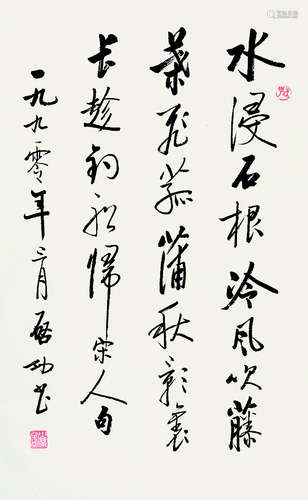 水浸石根冷风吹藤
叶飞菰蒲秋影里
长趁钓船归宋人句
一九九零年三月启功书